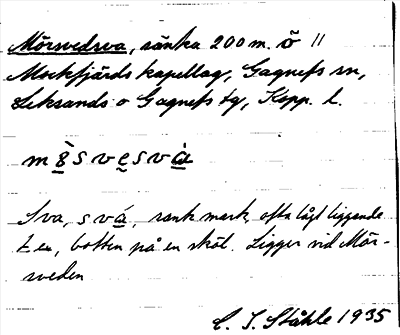 Mörsvedsva, sänka 200 m. ö ||
Mockfjärds kapellag, Gagnefs sn,
Leksands o Gagnefs tg, Kopp. l.
sva
Sva, svá, sank mark, ofta lågt liggande
t ex, botten på en slöt. Ligger vid Mör-
sveden
C. I. Ståhle 1935